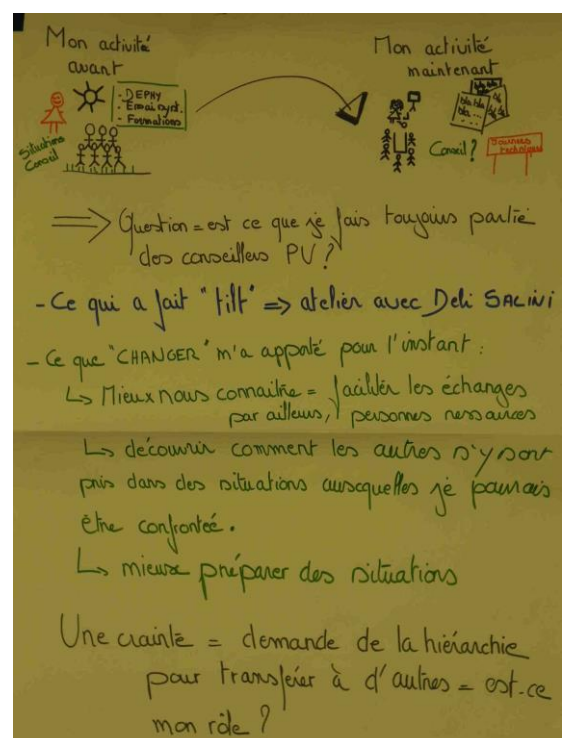 Mon activité
avant
- DEPHY
- Essai syst.
- Formations
Situations
Conseil
Mon activité
maintenant
bla bla
bla bla
bla
Conseil ?
Sources
techniques
=> Question = est ce que je fais toujours partie
des conseillers PV ?
- Ce qui a fait "tilt" => atelier avec Deli SALINI
- Ce que "CHANGER" m'a apporté pour l'instant :
↳ Mieux nous connaitre = faciliter les échanges
par ailleurs, personnes ressources
↳ découvrir comment les autres s'y sont
pris dans des situations auxquelles je pourrais
être confrontée.
↳ mieux préparer des situations
Une crainte = demande de la hiérarchie
pour transférer à d'autres = est-ce
mon rôle ?